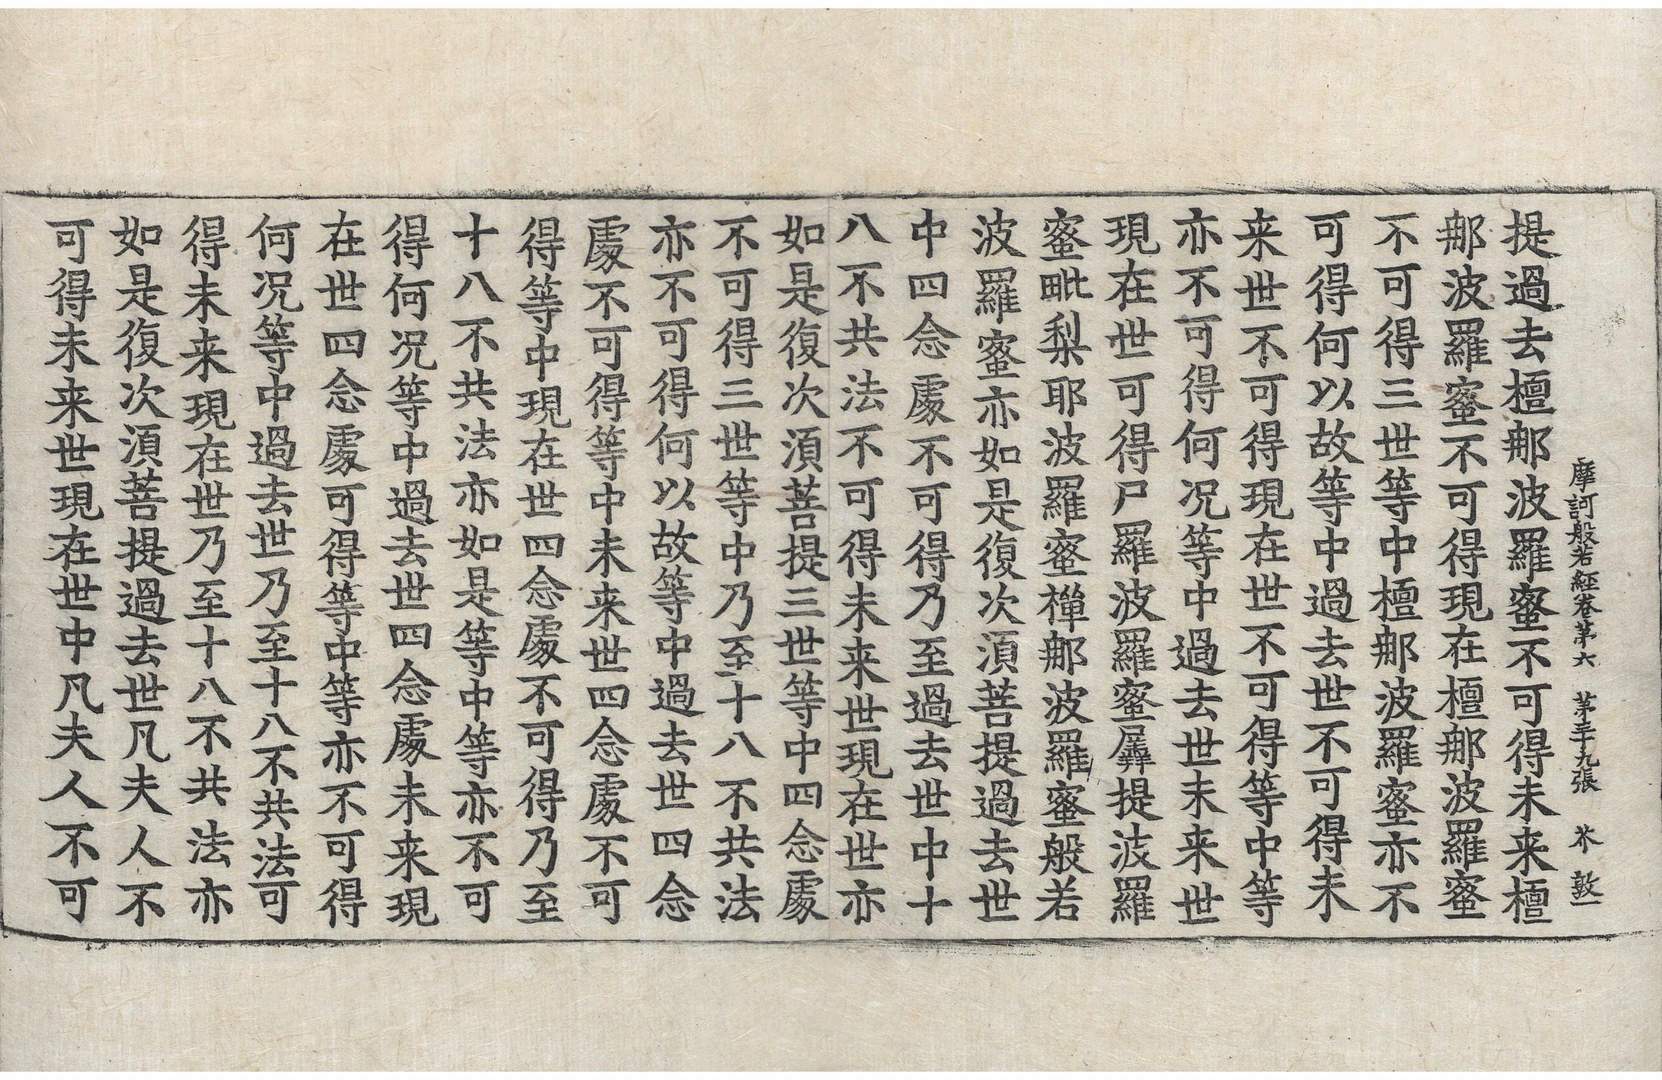 摩訶般若經卷第六 第三十九張 芥
提過去檀那波羅蜜不可得未来檀
那波羅蜜不可得現在檀那波羅蜜
不可得三世等中檀那波羅蜜亦不
可得何以故等中過去世不可得未
来世不可得現在世不可得等中等
亦不可得何况等中過去世未来世
現在世可得尸羅波羅蜜羼提波羅
蜜毗梨耶波羅蜜禪那波羅蜜般若
波羅蜜亦如是復次湏菩提過去世
中四念處不可得乃至過去世中十
八不共法不可得未来世現在世亦
如是復次湏菩提三世等中四念處
不可得三世等中乃至十八不共法
亦不可得何以故等中過去世四念
處不可得等中未来世四念處不可
得等中現在世四念處不可得乃至
十八不共法亦如是等中等亦不可
得何况等中過去世四念處未来現
在世四念處可得等中等亦不可得
何况等中過去世乃至十八不共法可
得未来現在世乃至十八不共法亦
如是復次湏菩提過去世凡夫人不
可得未来世現在世中凡夫人不可